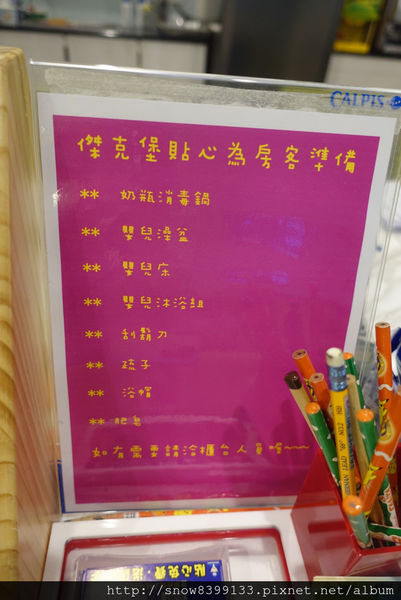 CALPIS
傑克堡貼心為房客準備
** 奶瓶消毒鍋
** 嬰兒澡盆
** 嬰兒床
** 嬰兒沐浴組
** 刮鬍刀
** 疏子
** 浴帽
** 肥皂
如有需要請洽櫃台人員喔~~
貼心免費
http://snow8399133.pixnet.net/album